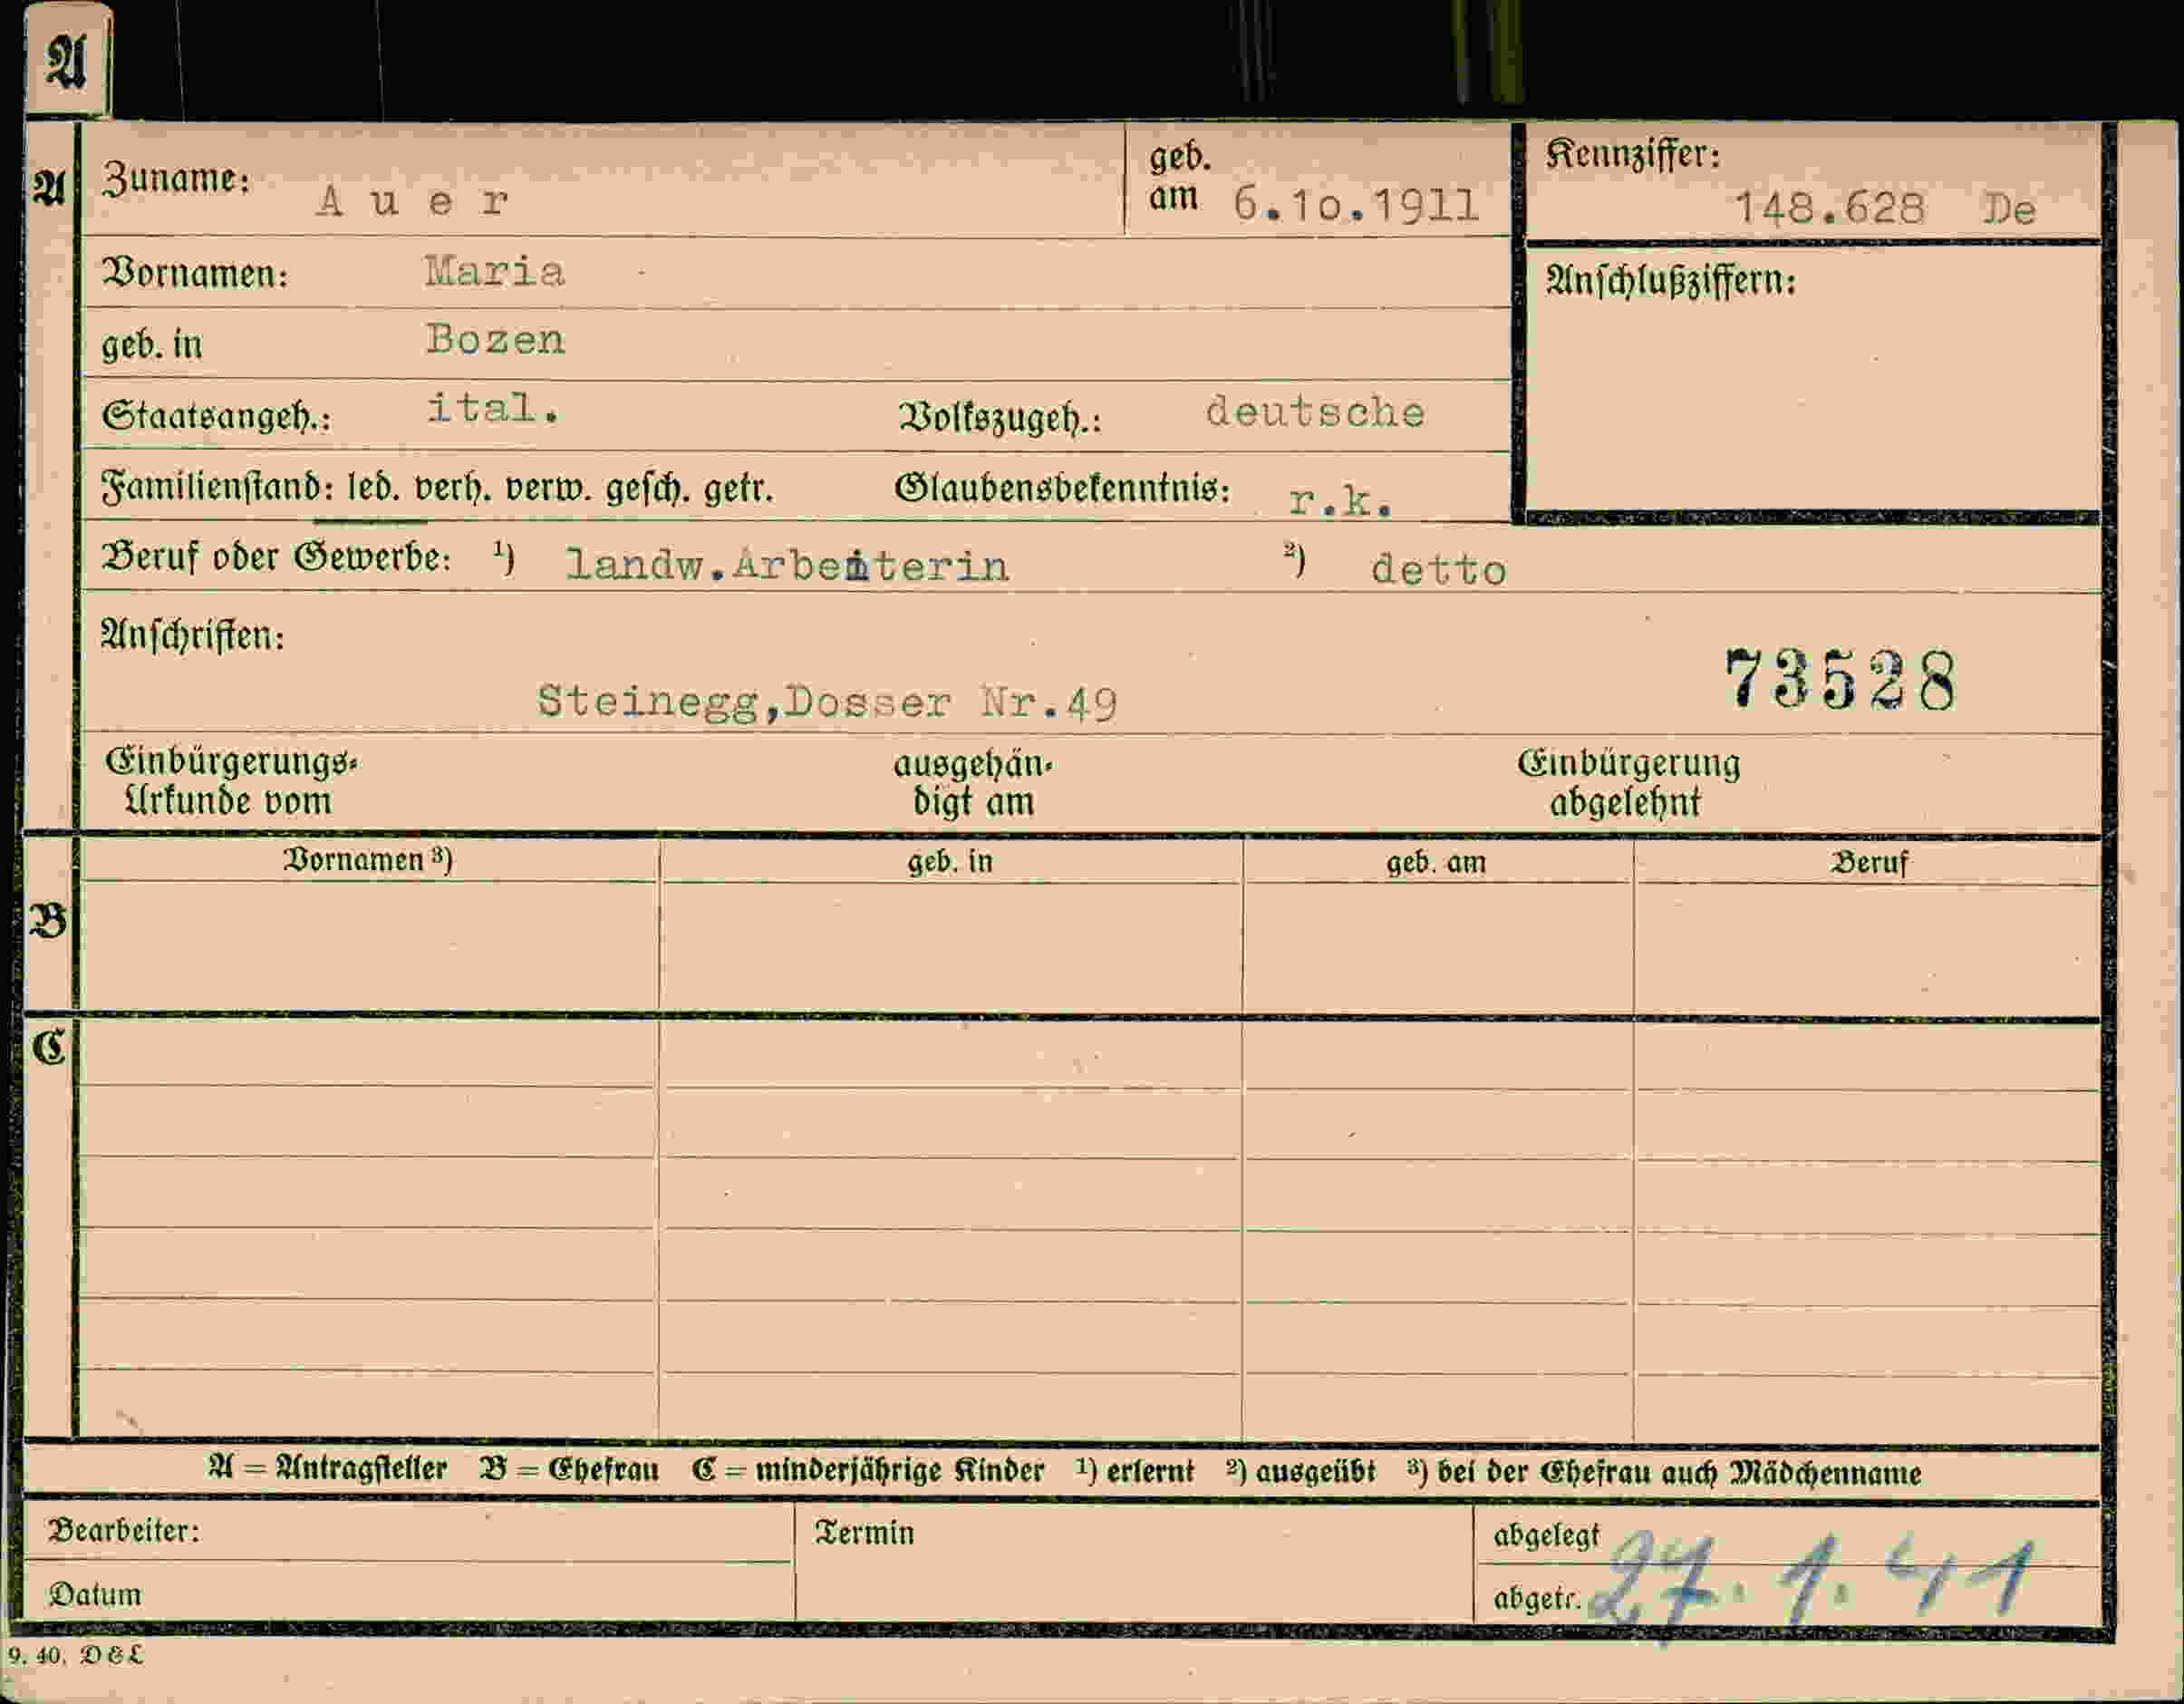 A
A Zuname: A u e r geb. am 6.10.1911 Kennziffer: 148.628 De
Vornamen: Maria Anschlußziffern:
geb. in Bozen
Staatsangeh.: ital. Volkszugeh.: deutsche
Familienstand: led. verh. verw. gesch. getr. Glaubensbekenntnis: r.k.
Beruf oder Gewerbe: ¹) landw.Arbeiterin ²) detto
Anschriften:
73528
Steinegg,Dosser Nr.49
Einbürgerungs- ausgehän- Einbürgerung
Urkunde vom digt am abgelehnt
Vornamen ³) geb. in geb. am Beruf
B
C
A = Antragsteller B = Ehefrau C = minderjährige Kinder ¹) erlernt ²) ausgeübt ³) bei der Ehefrau auch Mädchenname
Bearbeiter: Termin abgelegt
Datum abgetr. 27.1.41
9. 40. D & L